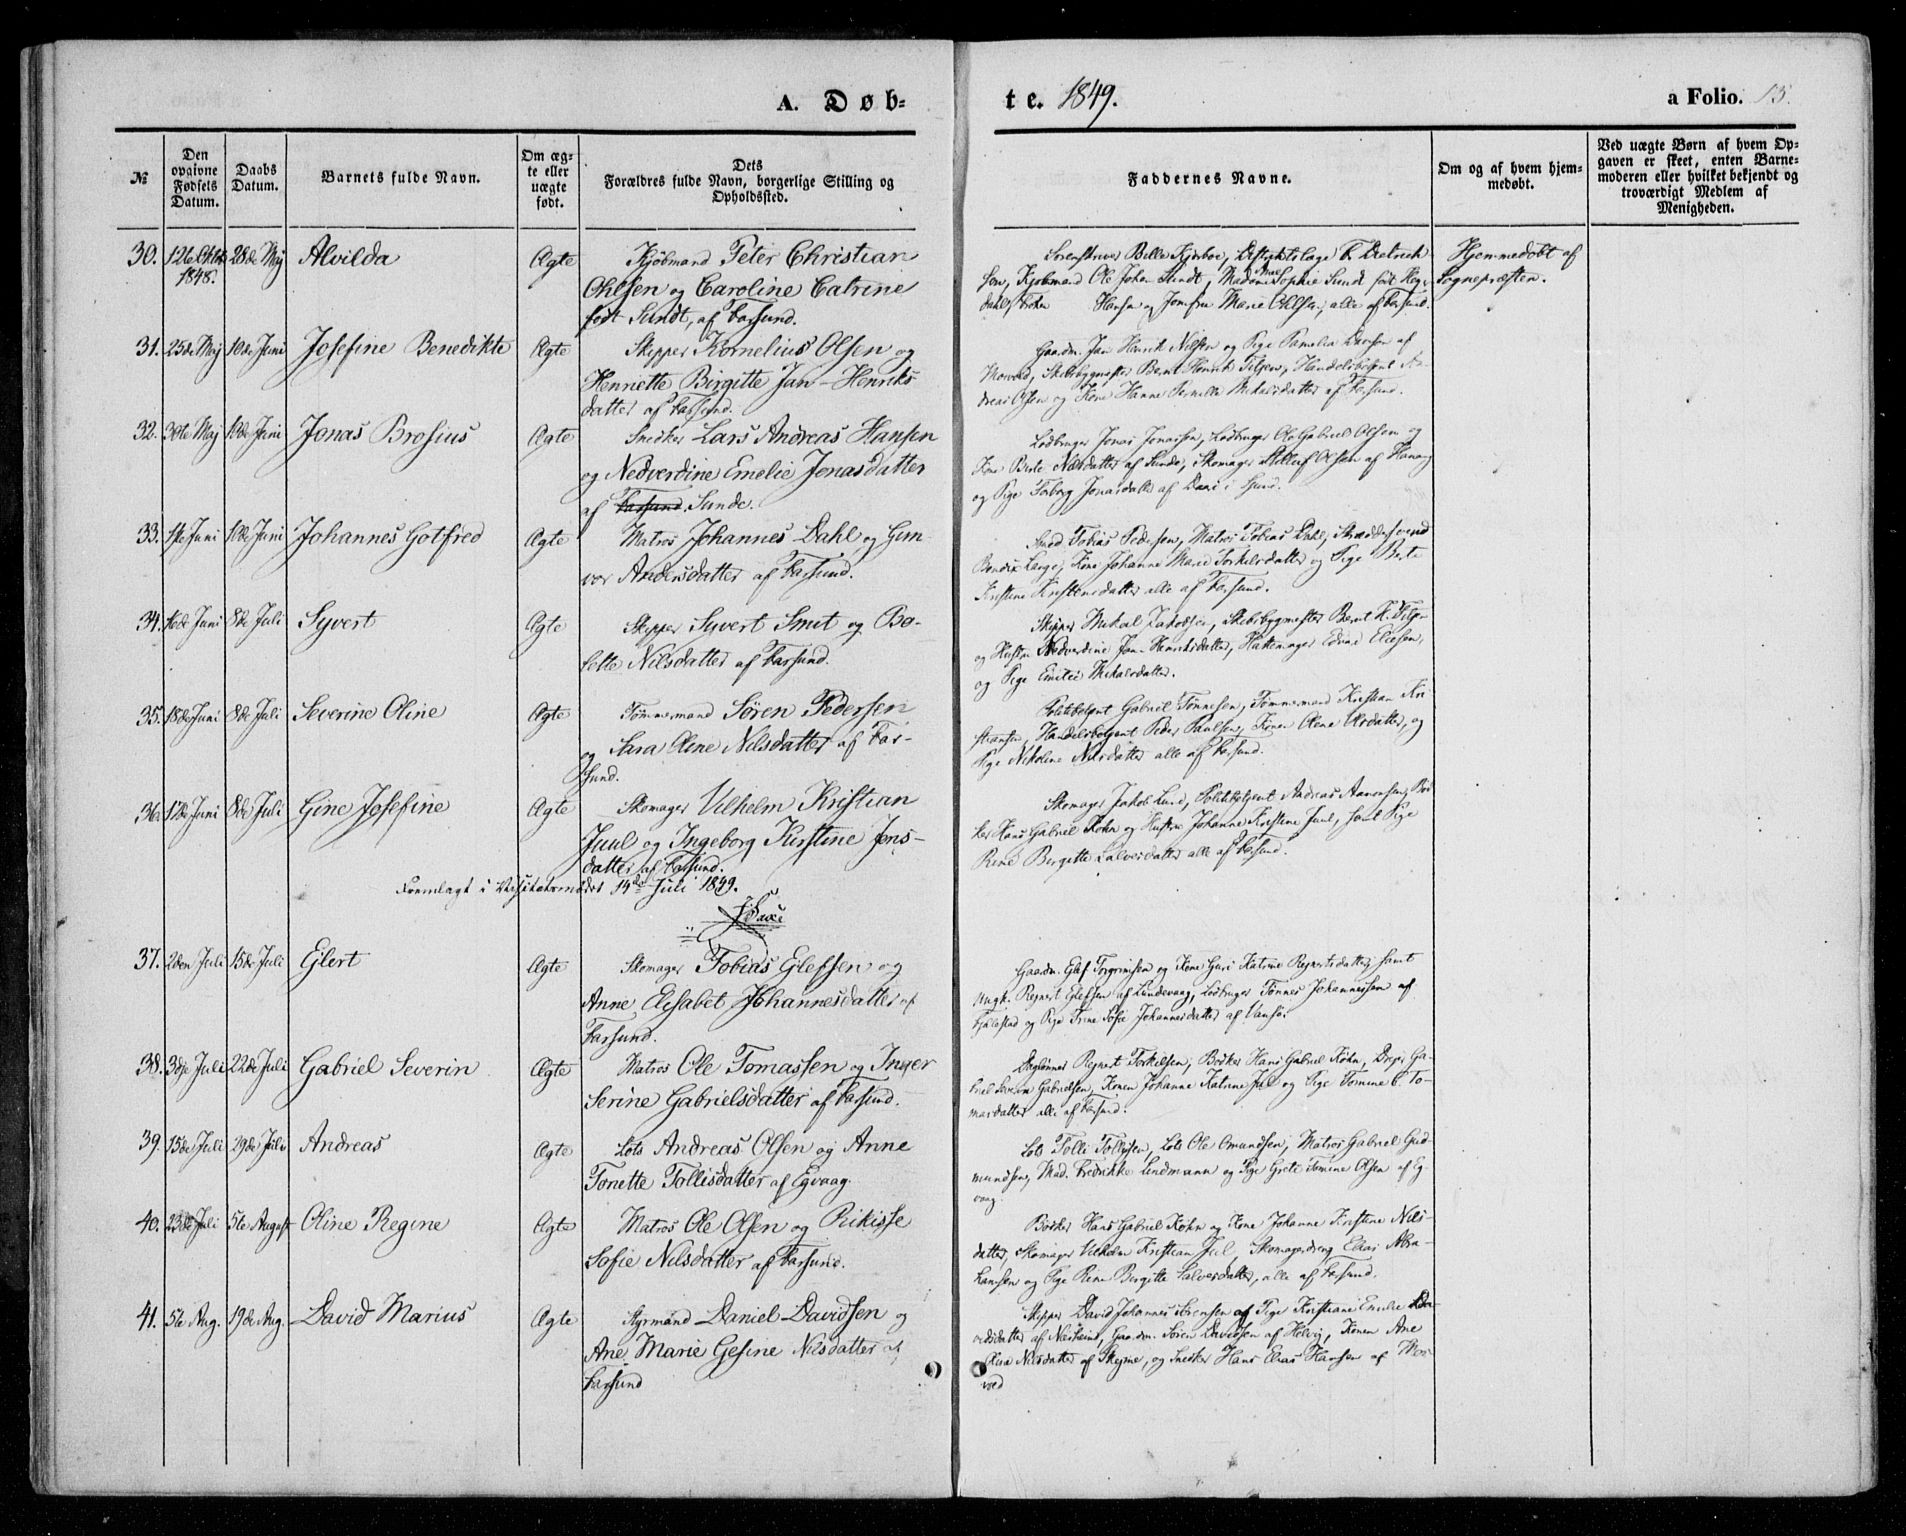 A. Døb-
te. 1849.
a Folio. 15.
№
Den opgivne Fødsels Datum.
Daabs Datum.
Barnets fulde Navn.
Om ægte eller uægte født.
Dets Forældres fulde Navn, borgerlige Stilling og Opholdssted.
Faddernes Navne.
Om og af hvem hjemmedøbt.
Ved uægte Børn af hvem Opgaven er skeet, enten Barnemoderen eller hvilket bekjendt og troværdigt Medlem af Menigheden.
30. 26 1848. 28de Maj Alvilda Ægte Kjøbmand Peter Christian
Ohlsen og Caroline Catrine
født Sundt, af Farsund.
Sorenskriver Bille Kjørboe, Distriktslæge C. Dietrich-
sen, Kjøbmand Ole Johan Sundt, Madam Sophie Sundt født
Frøken Hansen og Jomfru Marie Ohlsen, alle af Farsund.
Hjemmedøbt af
Sognepræsten.
31. 25de Maj 10de Juni Josefine Benedikte Ægte Skipper Kornelius Olsen og
Henriette Birgitte Jan-Henriks
datter af Farsund.
Gaardm. Jan Henrik Nilsen og Pige Pamelia Davisen af
Skibsbygmester Bernt Henrik Tiljer, Handelsbetjent An-
dreas Olsen og Kone Hanne Pernille Mikalsdatter af Farsund.
32. 30te Maj 10de Juni Jonas Brosius Ægte Snedker Lars Andreas Hansen
og Nedverdine Emelie Jonasdatter
af Farsund. Sunde.
Lodbruger Jonas Jonassen, Lodbruger Ole Gabriel Olsen og
Kone Berte Nilsdatter af Sunde, Skomager Olsen af
og Pige Torborg Jonasdatter af
33. 1ste Juni 10de Juni Johannes Gotfred Ægte Matros Johannes Dahl og Gun-
vor Andersdatter af Farsund.
Smed Tobias Pedersen, Matros Tobias Dahl, Skræddersvend
Bendix Lange, Kone Johanne Marie Torkelsdatter og Pige Berte
Kristine Kristensdatter alle af Farsund.
34. 16de Juni 8de Juli Syvert Ægte Skipper Syvert Smit og Bo-
lette Nilsdatter af Farsund.
Skipper Mikal Jakobsen, Skibsbygmester Bernt H. Tiljer
og Hustru Nedverdine Jan-Henriksdatter, Hattemager Edvin Eliesen,
og Pige Emilie Mikalsdatter.
35. 18de Juni 8de Juli Severine Oline Ægte Tømmermand Sören Pedersen
og Sara Olene Nilsdatter af Far-
sund.
Politibetjent Gabriel Tønnesen, Tømmermand Kristian Kri-
stiansen, Handelsbetjent Peder Paulsen, Konen Olene Olsdatter, og
Pige Nikoline Nilsdatter alle af Farsund.
36. 17de Juni 8de Juli Gine Josefine Ægte Skomager Vilhelm Kristian
Juul og Ingeborg Kirstine Jens-
datter af Farsund.
Skomager Jakob Lund, Politibetjent Andreas Aanensen, Bød-
ker Hans Gabriel Kohn og Hustru Johanne Kristine Juul, samt Pige
Rine Birgitte Salvesdatter alle af Farsund.
Fremlagt i Visitatsmødet 14de Juli 1849.
37. 2den Juli 15de Juli Ejlert Ægte Skomager Tobias Elefsen og
Anne Elisabet Johannesdatter af
Farsund.
Gaardm. Elef Torgrimsen og Kone Guri Katrine Rejnertsdatter, samt
Ungk. Rejnert Elefsen af Lindevaag, Lodbruger Tønnes Johannessen af
og Pige Trine Sofie Johannesdatter af Vanse.
38. 3dje Juli 22de Juli Gabriel Severin Ægte Matros Ole Tomassen og Inger
Serine Gabrielsdatter af Farsund.
Daglønner Rejnert Torkelsen, Bødker Hans Gabriel Kohn, Dreng Ga-
briel Severin Gabrielsen, Konen Johanne Katrine Jul og Pige Tomine C. To-
masdatter alle af Farsund.
39. 15de Juli 29de Juli Andreas Ægte Lots Andreas Olsen og Anne
Tonette Tollisdatter af Egvaag.
Lots Tolli Tollissen, Lots Ole Omundsen, Matros Gabriel Gud-
mundsen, Mad. Fredrikke Lindmann og Pige Grete Tomine Olsen af Eg-
vaag.
40. 23de Juli 5te August Oline Regine Ægte Matros Ole Olsen og Rikisse
Sofie Nilsdatter af Farsund.
Bødker Hans Gabriel Kohn og Kone Johanne Kristine Nils-
datter, Skomager Vilhelm Kristian Jul, Skomagerdreng Elias Abra-
hamsen og Pige Rine Birgitte Salvesdatter, alle af Farsund.
41. 5te Aug. 19de Aug. David Marius Ægte Styrmand Daniel Davidsen og
Ane Marie Gesine Nilsdatter af
Farsund
Skipper David Johannes Sørensen og Pige Kristiane Emilie Da-
vidsdatter af Gaardm. Søren Davidsen af Helvig, Konen Ane
Elisa Nilsdatter af Skejme, og Snedker Hans Elias Hansen af